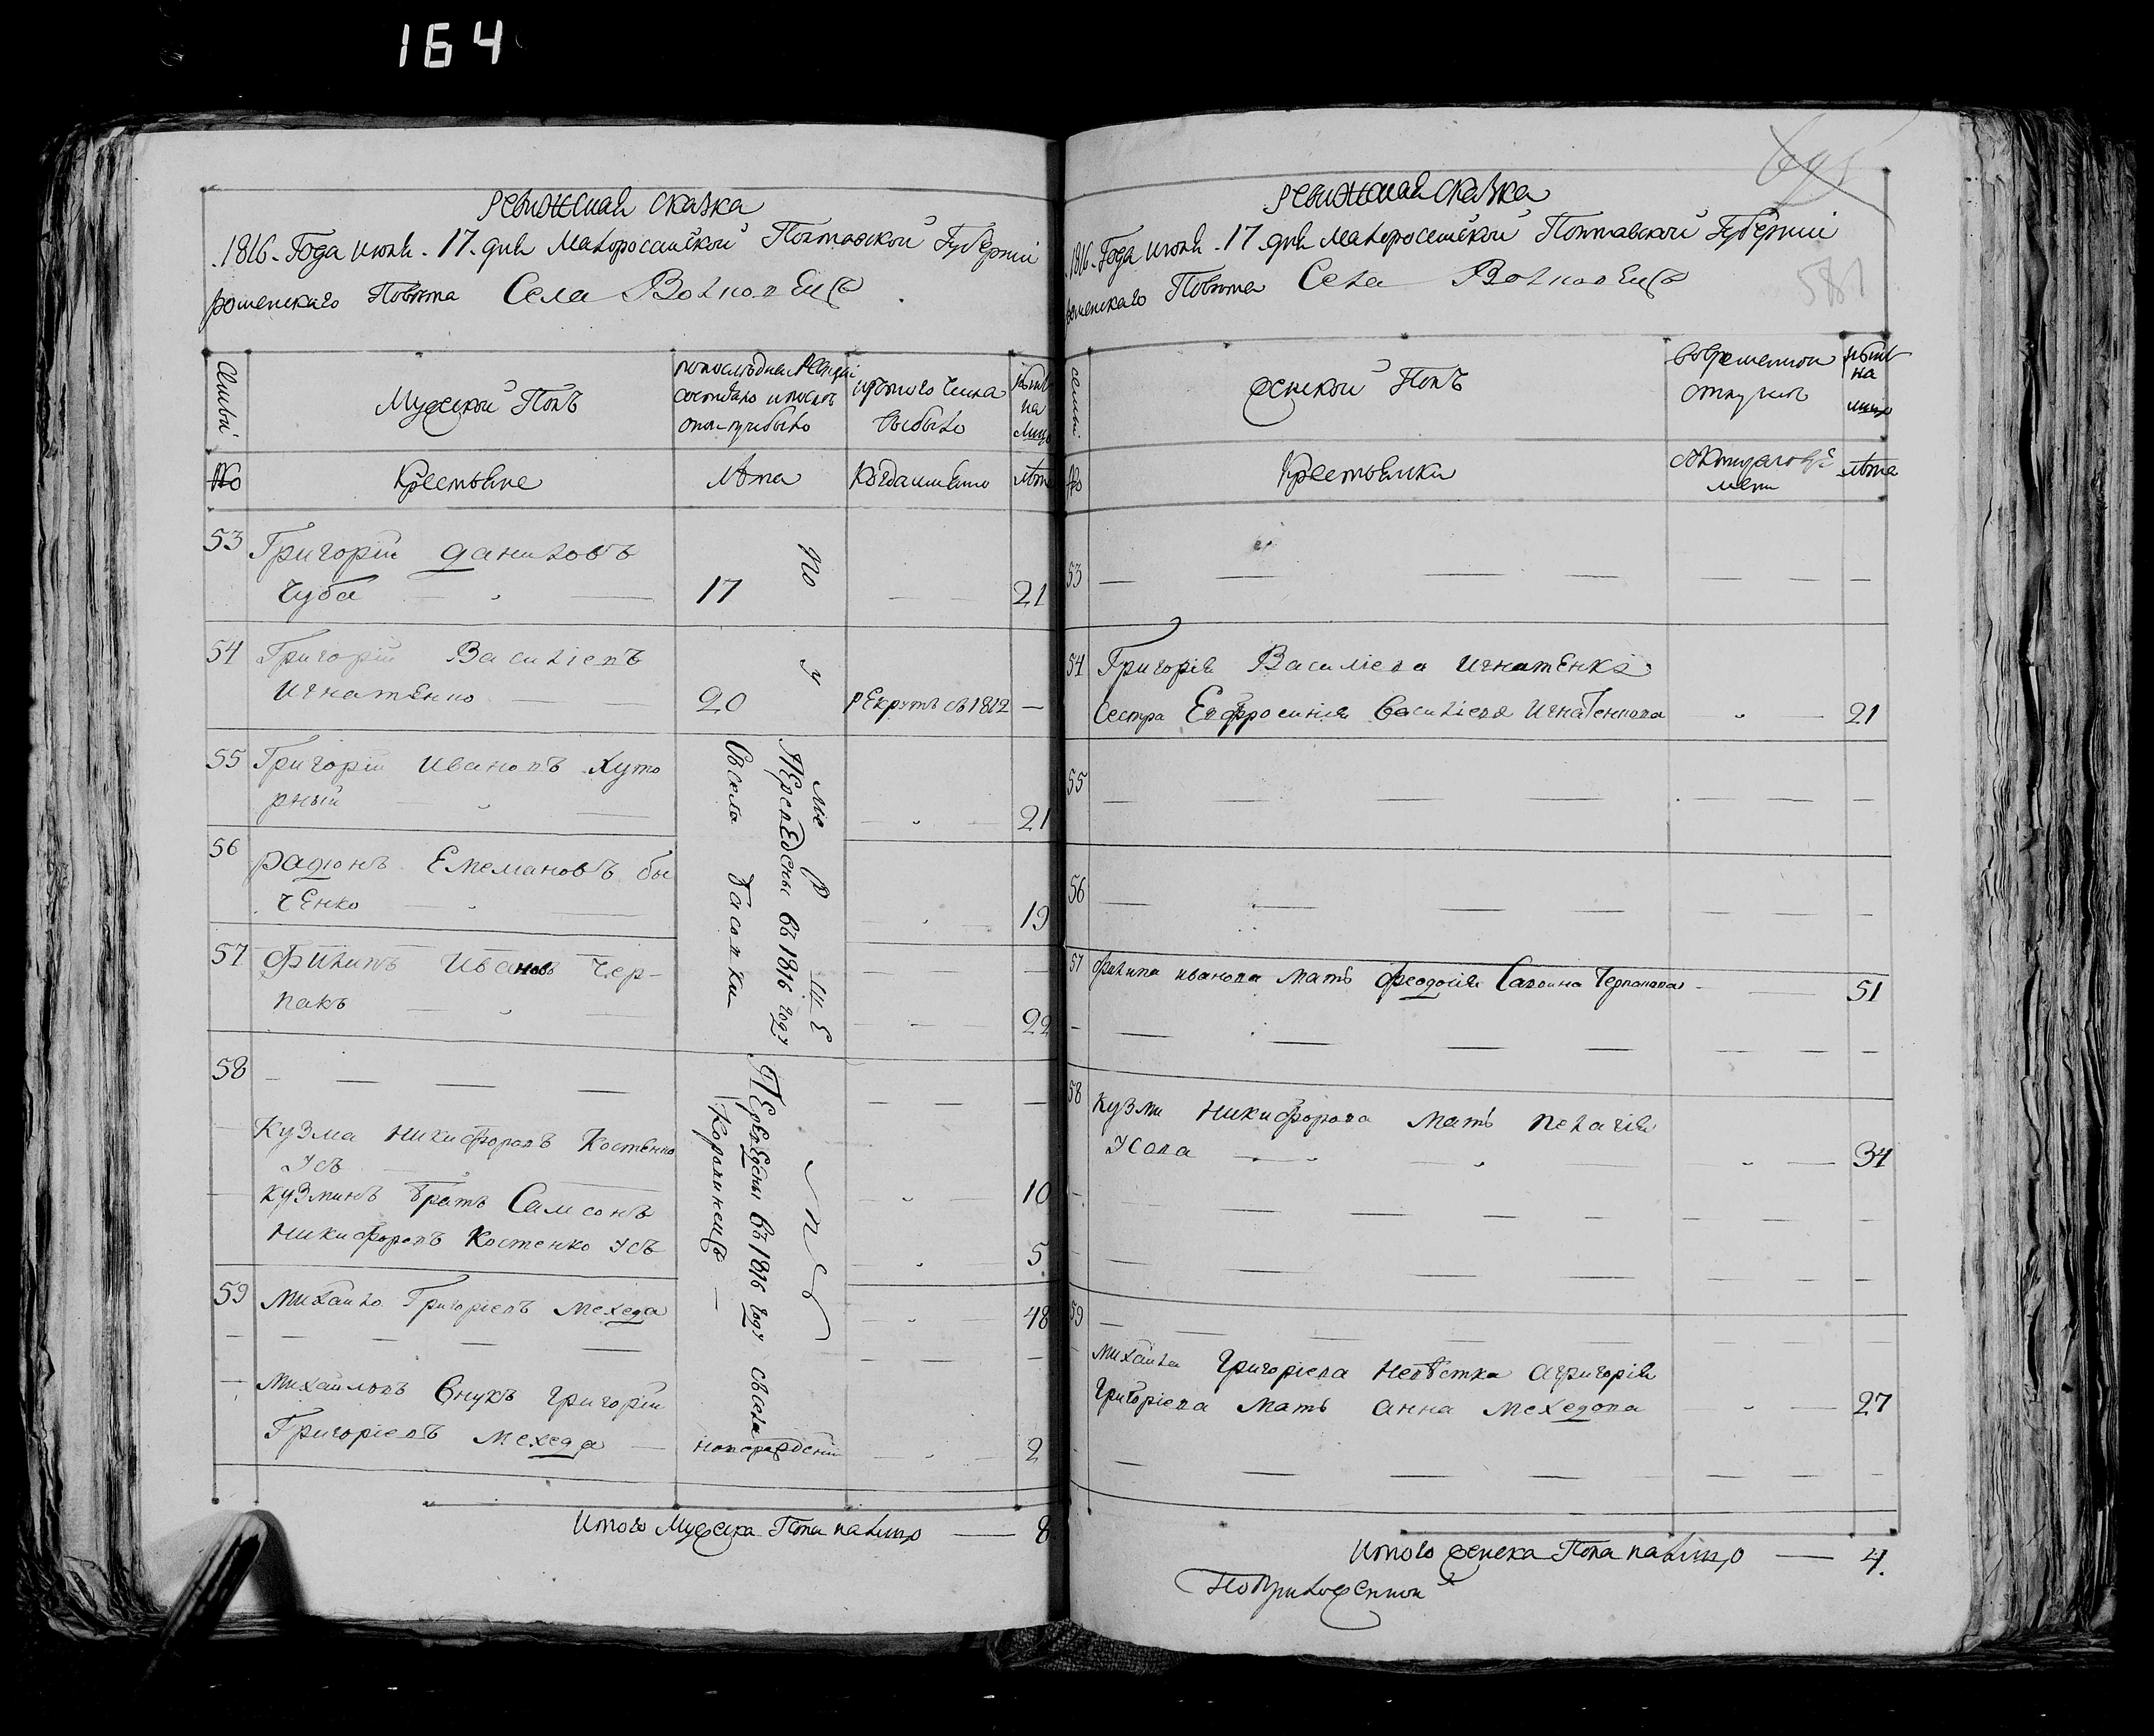 164
Ревижская сказка
1816. Года июня. 17. дня Малоросийской Полтавской Губернии
роменского Повѣта Села Волковець
Семьи
Мужской Полъ
По последней Ревизіи состояло и после
изтого числа
выбыло
нынѣ
на
лицо
№
Крестьяне
Лѣта
Когда имянно
лѣта
53 Григорій Даниловъ
Чуба 17 21
54 Григорій Василіевъ
Игнатенко 20 рекрутъ въ 1812 —
55 Григорій Ивановъ Хуто
рный 21
56 Радіонъ Емелмановъ бы
ченко 19
57 Филипъ Ивановъ Чер-
пакъ 22
Переведены въ 1816 году
Съ села Басовки
58
Кузма Никифоровъ Костенко
Усъ 10
Кузминъ братъ Самсонъ
Никифоровъ Костенко Усъ 5
59 Михайло Григоріевъ Мехеда 48
Михайловъ Внукъ Григорій
Григоріевъ Мехеда 2
Переведены въ 1816 году съ села
Коровинець
новорожденій
Итого Мужеска Пола налицо — 8
Ревижская сказка
1816. Года июня. 17. дня Малоросийской Полтавской Губерніи
роменского Повѣта Села Волковець
581
Семьи
Женской Полъ
Во временной
отлучкѣ
нынѣ
на
лицо
№
Крестьянки
лѣта
53
54 Григорія Василіева Игнатенка
Сестра Евфросинія Василіева Игнатенкова 21
55
56
57 Филипа Иванова Мать Феодосія Савина Черпакова 51
58 Кузми Никифорова Мать Пелагія
Усова 34
59
Михайла Григоріева Невѣстка а Григорія
Григоріева Мать Анна Мехедова 27
Итого Женска Пола налицо — 4.